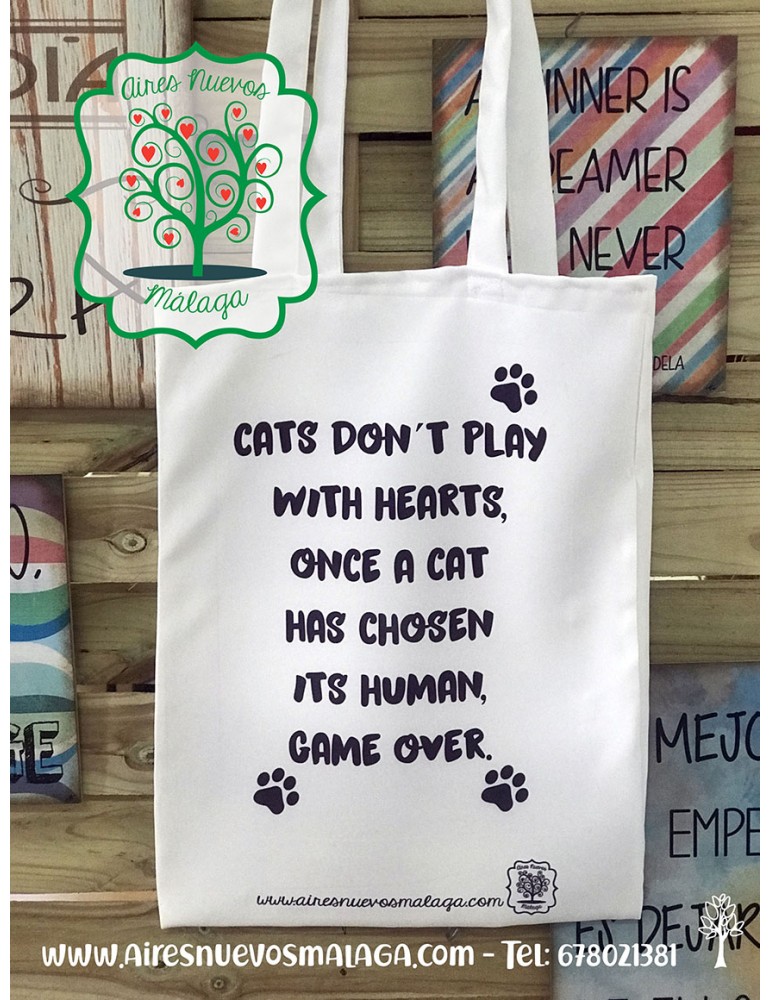 Aires Nuevos
Málaga
DÍA
INNER IS
REAMER
NEVER
DELA
CATS DON´T PLAY
WITH HEARTS,
ONCE A CAT
HAS CHOSEN
ITS HUMAN,
GAME OVER.
MEJO
EMPE
ES DEJAR
Aires Nuevos
Málaga
www.airesnuevosmalaga.com
www.AIRESNUEVOSMALAGA.com - Tel: 678021381